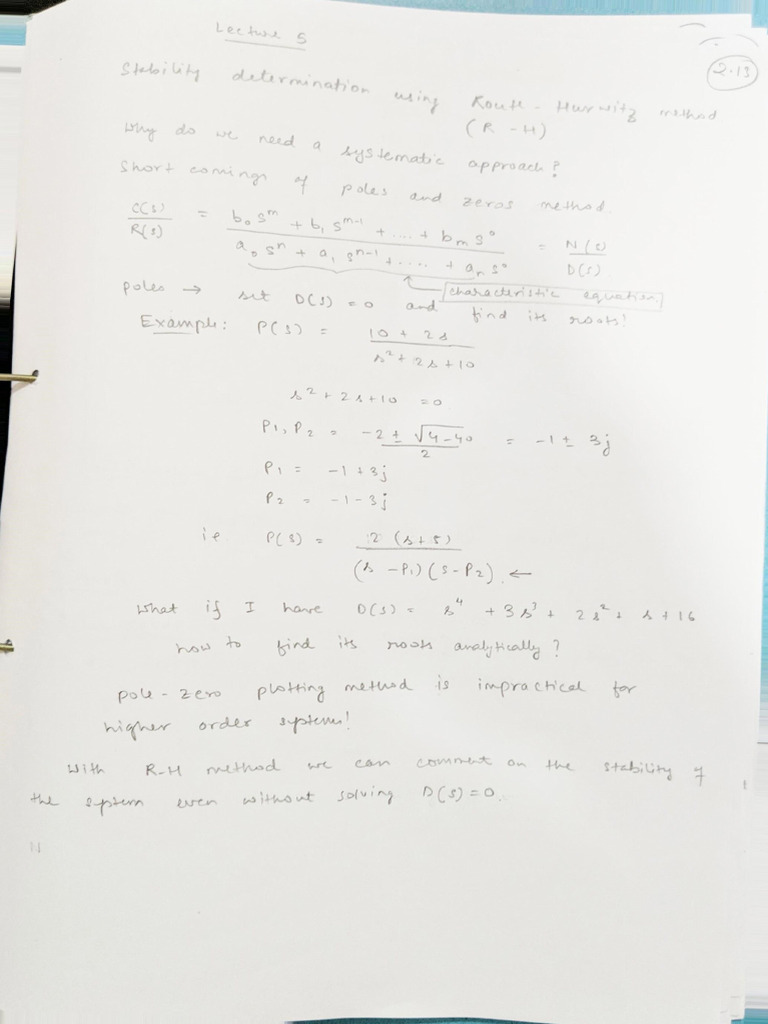 Lecture 5
2.13
Stability determination using Routh-Hurwitz method
(R-H)
Why do we need a systematic approach?
Short comings of poles and zeros method.
C(s)/R(s) = (b₀ s^m + b₁ s^(m-1) + .... + b_m s⁰)/(a₀ s^n + a₁ s^(n-1) + ..... + a_n s⁰) = N(s)/D(s)
characteristic equation
poles → set D(s) = 0 and find its roots!
Example: P(s) = (10 + 2s)/(s² + 2s + 10)
s² + 2s + 10 = 0
P₁, P₂ = (-2 ± √(4-40))/2 = -1 ± 3j
P₁ = -1 + 3j
P₂ = -1 - 3j
ie P(s) = 2 (s+5)/((s - P₁) (s - P₂)) ←
What if I have D(s) = s⁴ + 3s³ + 2s² + s + 16
how to find its roots analytically?
pole-zero plotting method is impractical for
higher order systems!
With R-H method we can comment on the stability of
the system even without solving D(s) = 0.
N